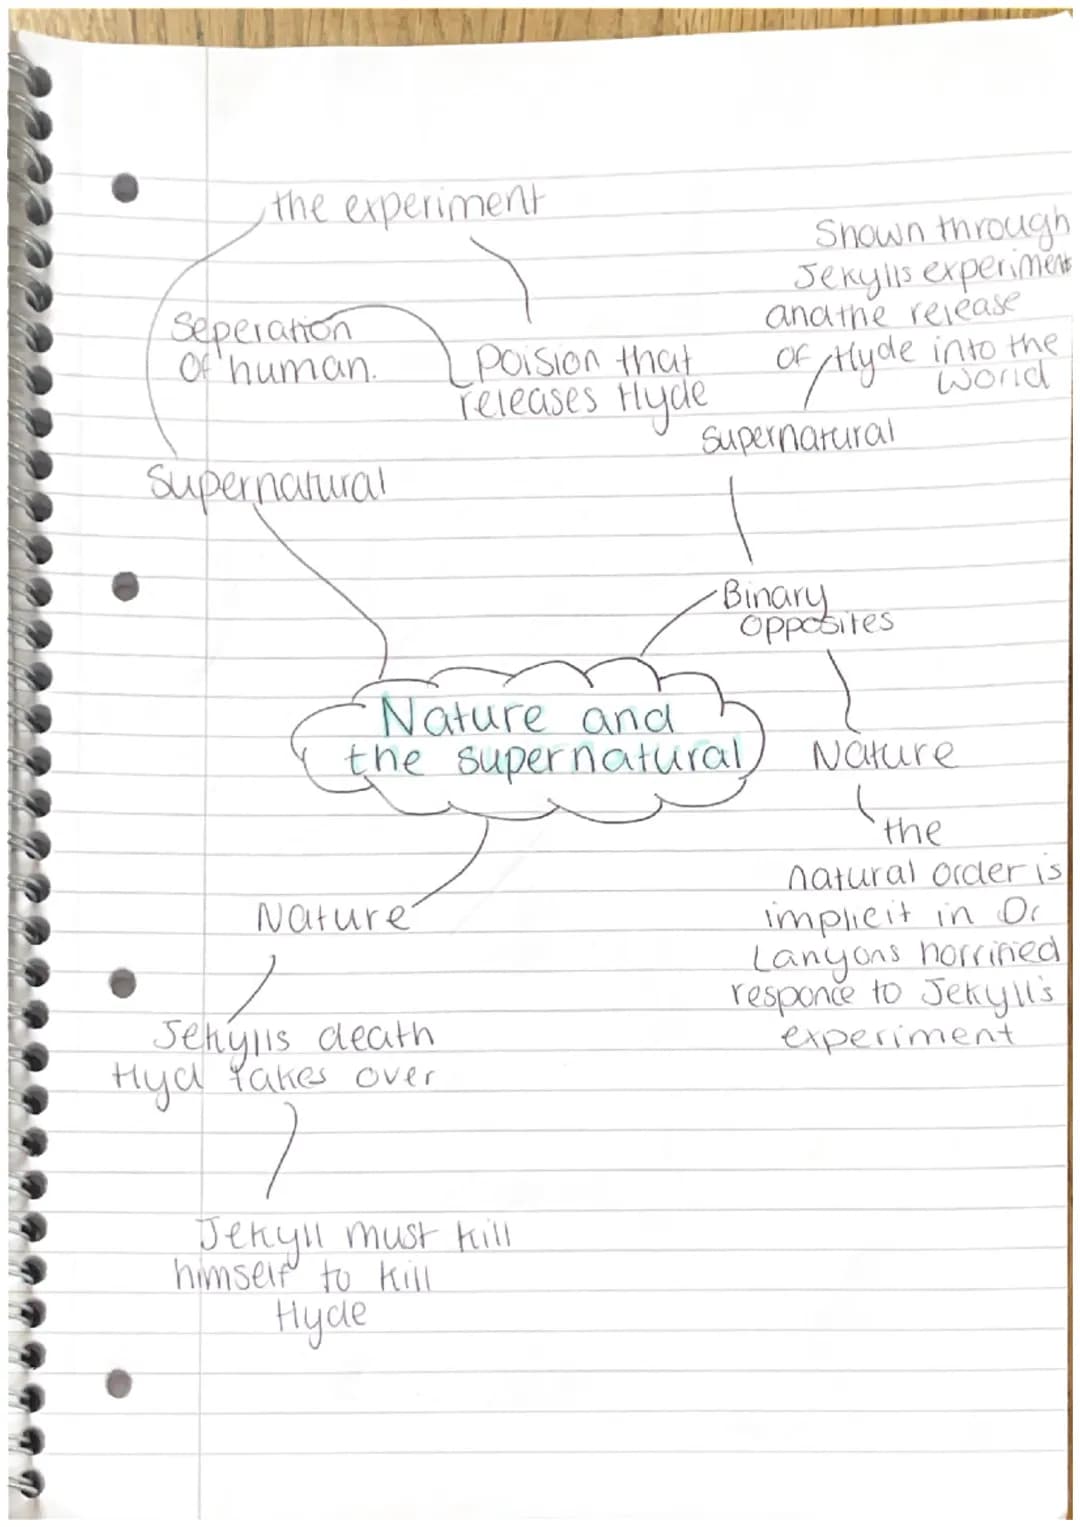 the experiment
Seperation
Of human.
Poision that
releases Hyde
Supernatural
Shown through
Jekylls experiment
and the release
of Hyde into the
World
supernatural
Binary
opposites
Nature and
the supernatural
Nature
the
natural order is
implicit in Dr
Lanyons horrified
responce to Jekyll's
experiment
Nature
Jekylls death
Hyd takes over
Jekyll must kill
himself to kill
Hyde